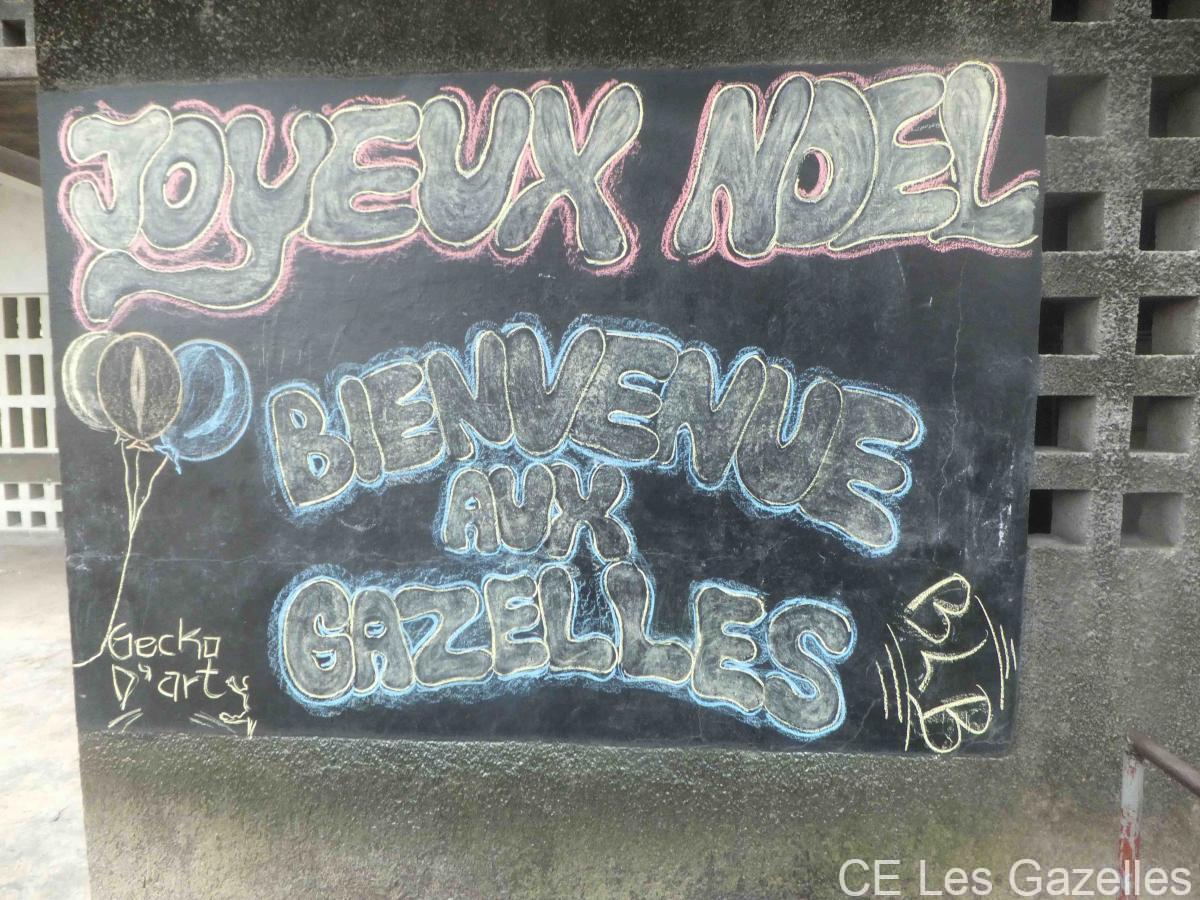 JOYEUX NOEL
BIENVENUE
AUX
GAZELLES
Gecko
D'art
BLB
CE Les Gazelles